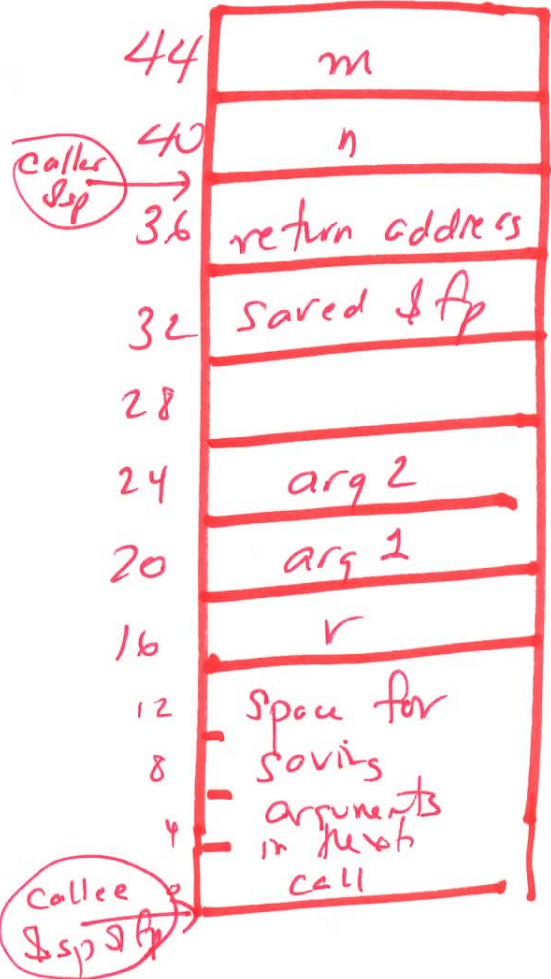 44 m
40 n
caller
$sp
36 return address
32 saved $fp
28
24 arg 2
20 arg 1
16 r
12 space for
8 saving
arguments
4 in next
0 call
callee
$sp $fp